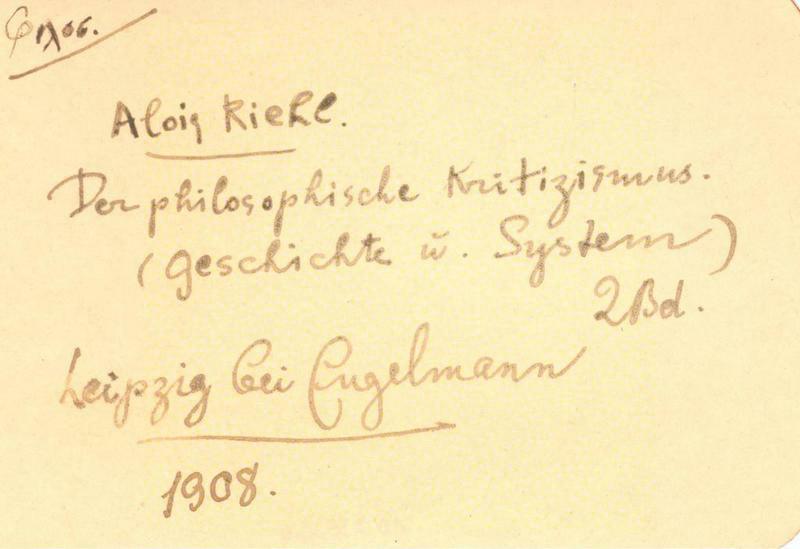 Alois Riehl.
Der philosophische Kritizismus.
(Geschichte ü. System)
2Bd.
Leipzig bei Engelmann
1908.